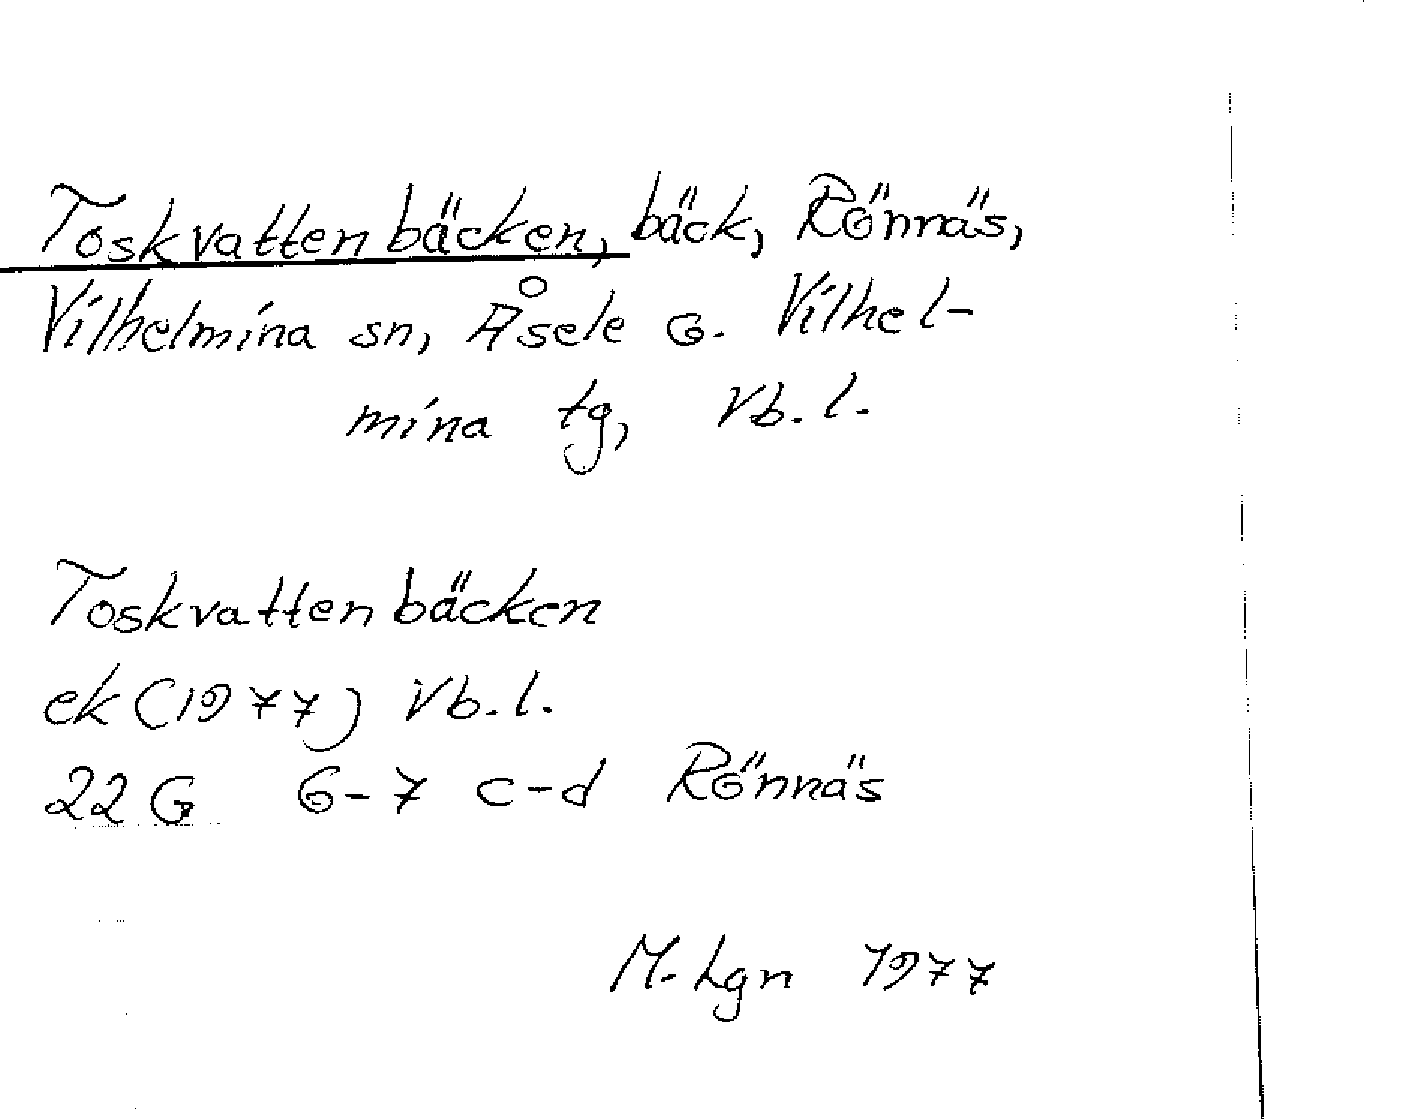 Toskvattenbäcken, bäck, Rönnäs,
Vilhelmina sn, Åsele o. Vilhel-
mina tg, Vb. l.
Toskvattenbäcken
ek (1977) Vb. l.
22 G 6-7 c-d Rönnäs
M. Lgn 1977